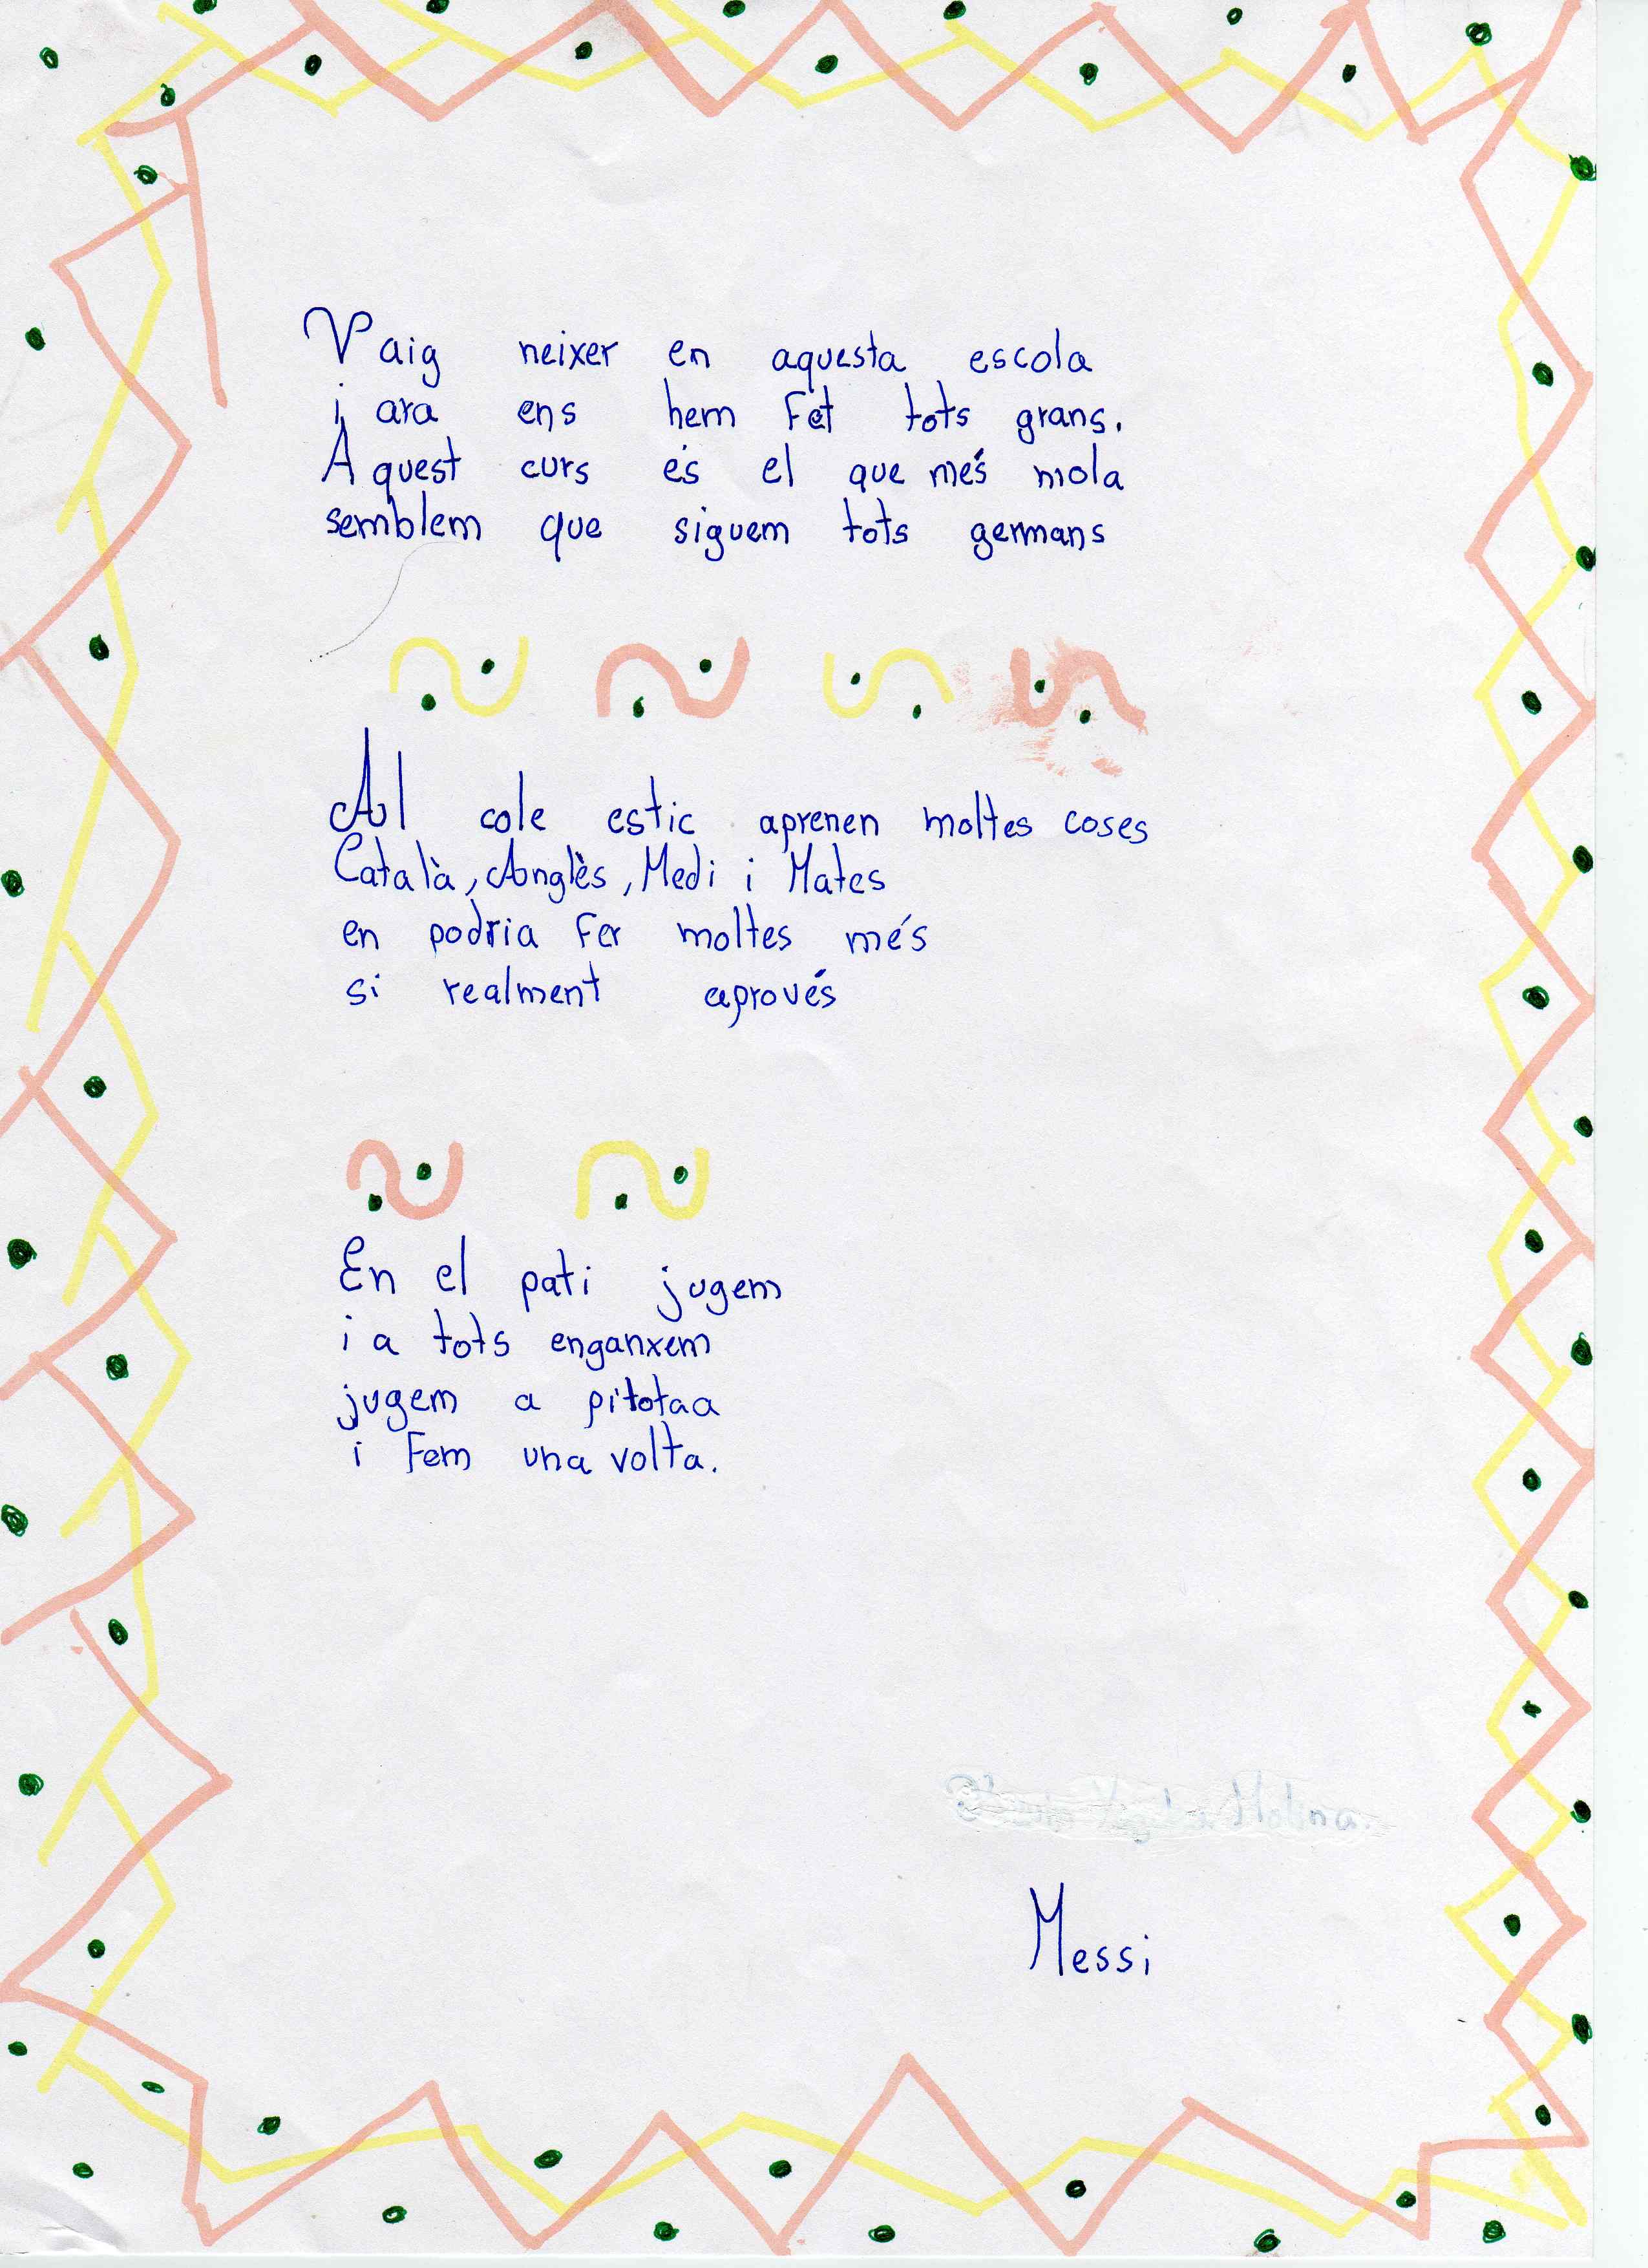 Vaig neixer en aquesta escola
i ara ens hem Fet tots grans.
Aquest curs és el que més mola
semblem que siguem tots germans
Al cole estic aprenen moltes coses
Català, Anglès, Medi i Mates
en podria Fer moltes més
si realment aprovés
En el pati jugem
i a tots enganxem
jugem a pitotaa
i Fem una volta.
Messi